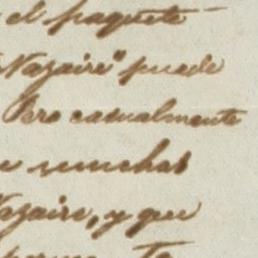 el paquete
Nazaire" puede
Pero casualmente
muchas
Nazaire, y que